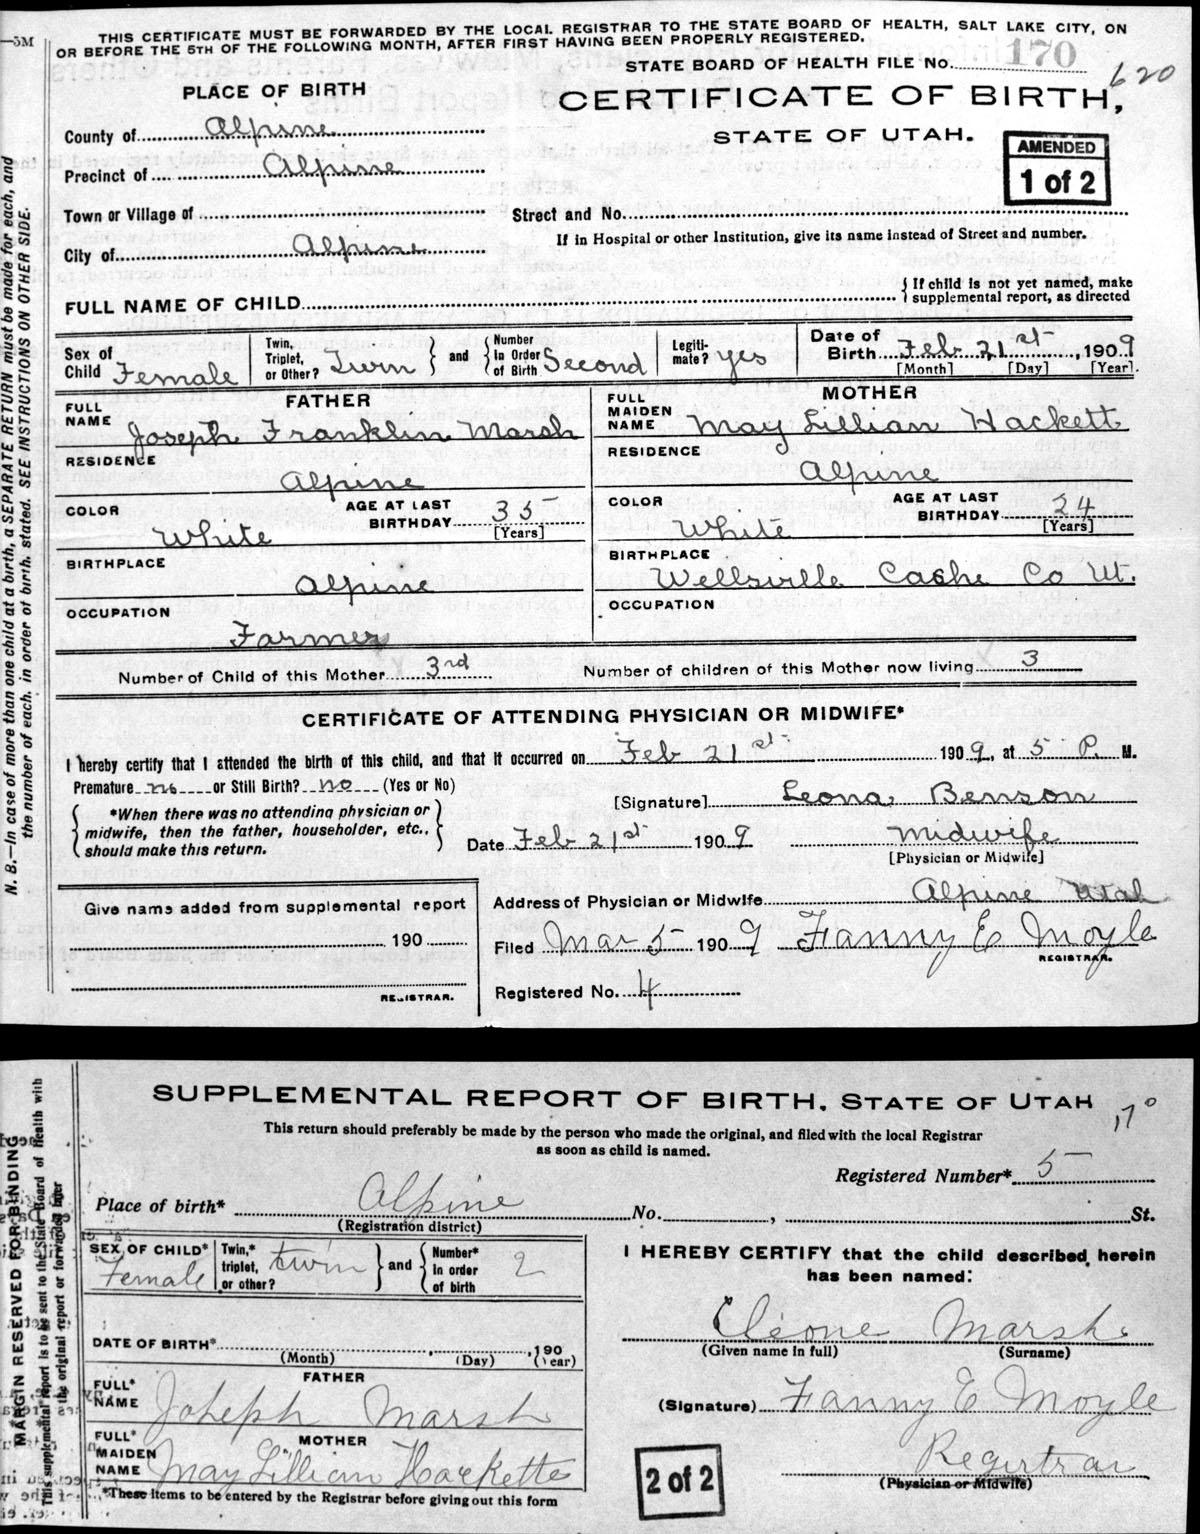 THIS CERTIFICATE MUST BE FORWARDED BY THE LOCAL REGISTRAR TO THE STATE BOARD OF HEALTH, SALT LAKE CITY, ON
OR BEFORE THE 5TH OF THE FOLLOWING MONTH, AFTER FIRST HAVING BEEN PROPERLY REGISTERED.
—5M
STATE BOARD OF HEALTH FILE No. 170
620
PLACE OF BIRTH
CERTIFICATE OF BIRTH,
STATE OF UTAH.
AMENDED
1 of 2
County of Alpine
Precinct of Alpine
Town or Village of
Street and No.
City of Alpine
If in Hospital or other Institution, give its name instead of Street and number.
FULL NAME OF CHILD
{ If child is not yet named, make
supplemental report, as directed
Sex of Child Female
Twin, Triplet, or Other? Twin } and { Number In Order of Birth Second
Legiti-mate? yes
Date of Birth Feb 21st, 1909
[Month] [Day] [Year]
FATHER
FULL NAME Joseph Franklin Marsh
MOTHER
FULL MAIDEN NAME May Lillian Hackett
RESIDENCE Alpine
RESIDENCE Alpine
COLOR White
AGE AT LAST BIRTHDAY 35 [Years]
COLOR White
AGE AT LAST BIRTHDAY 24 [Years]
BIRTHPLACE Alpine
BIRTHPLACE Wellsville Cache Co Ut.
OCCUPATION Farmer
OCCUPATION
Number of Child of this Mother 3rd
Number of children of this Mother now living 3
CERTIFICATE OF ATTENDING PHYSICIAN OR MIDWIFE*
I hereby certify that I attended the birth of this child, and that it occurred on Feb 21st 1909, at 5 P. M.
Premature no or Still Birth? no (Yes or No)
{ *When there was no attending physician or
midwife, then the father, householder, etc.,
should make this return. }
[Signature] Leona Benson
Date Feb 21st 1909
Midwife
[Physician or Midwife]
Give name added from supplemental report
190
REGISTRAR.
Address of Physician or Midwife Alpine Utah
Filed Mar 5 1909 Fanny E Moyle
REGISTRAR.
Registered No. 4
N. B.—In case of more than one child at a birth, a SEPARATE RETURN must be made for each, and
the number of each, in order of birth, stated. SEE INSTRUCTIONS ON OTHER SIDE.
SUPPLEMENTAL REPORT OF BIRTH, STATE OF UTAH
170
This return should preferably be made by the person who made the original, and filed with the local Registrar
as soon as child is named.
Registered Number* 5
Place of birth* Alpine No. , St.
(Registration district)
SEX OF CHILD* Female
Twin,* triplet, or other? twin } and { Number* in order of birth 2
DATE OF BIRTH* , 190
(Month) (Day) (Year)
FATHER
FULL* NAME Joheph Marsh
MOTHER
FULL* MAIDEN NAME May Lillian Hackette
*These items to be entered by the Registrar before giving out this form
I HEREBY CERTIFY that the child described herein
has been named:
Cleone Marsh
(Given name in full) (Surname)
(Signature) Fanny E Moyle
Regirtrar
(Physician or Midwife)
2 of 2
MARGIN RESERVED FOR BINDING
This supplemental report is to be sent to the State Board of Health with
the original report or forwarded later